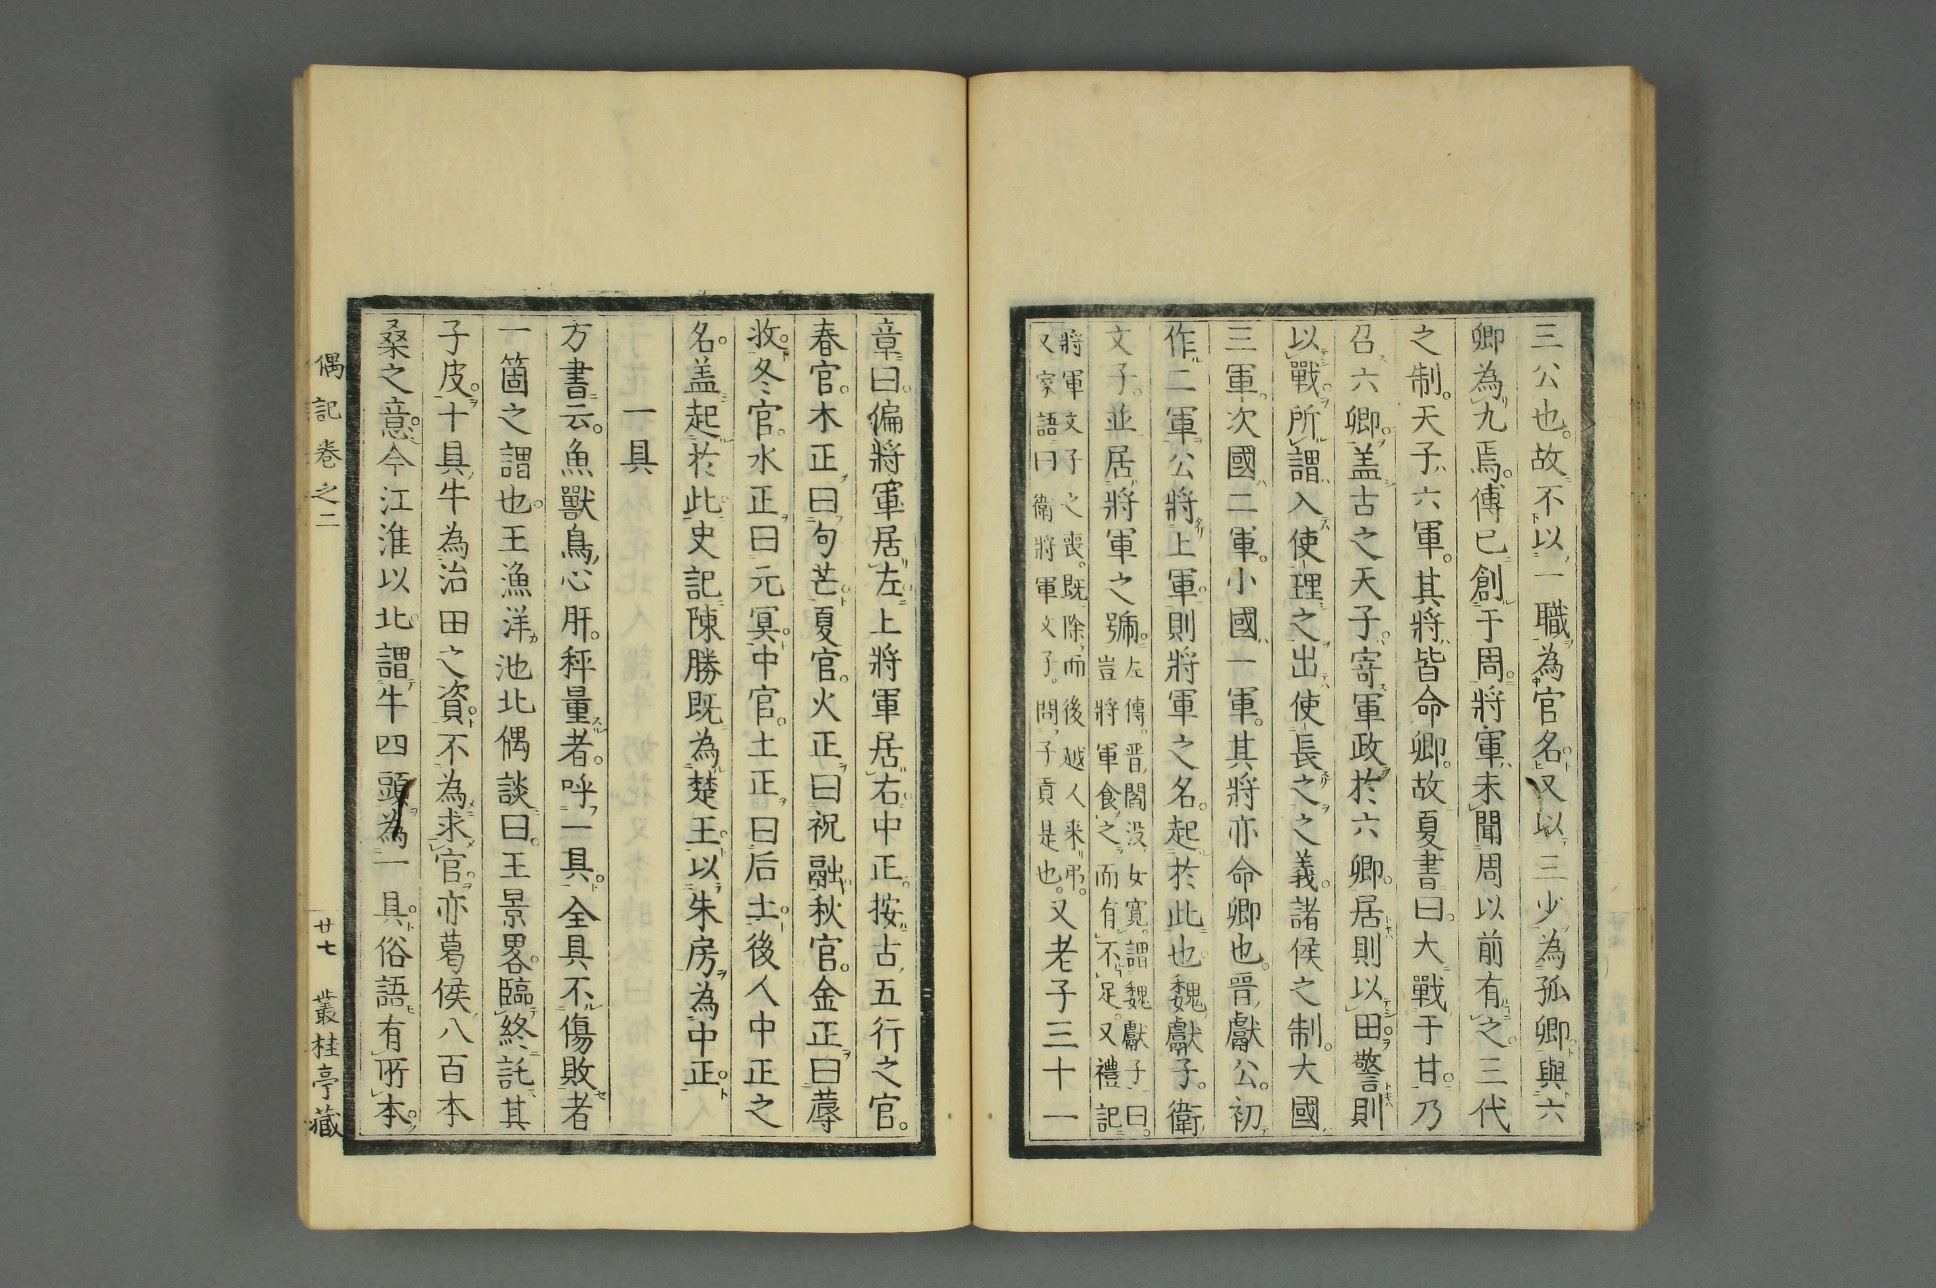 三公也故不以一職為官名又以三少為孤卿與六
卿為九焉傳已創于周將軍未聞周以前有之三代
之制天子六軍其將皆命卿故夏書曰大戰于甘乃
召六卿盖古之天子寄軍政於六卿居則以田警則
以戰所謂入使理之出使長之之義諸侯之制大國
三軍次國二軍小國一軍其將亦命卿也晋獻公初
作二軍公將上軍則將軍之名起於此也魏獻子衛
文子並居將軍之號
左傳晋閻没女寛謂魏獻子曰
豈將軍食之而有不足又禮記
將軍文子之喪既除而後越人来弔
又家語曰衛將軍文子問子貢是也
又老子三十一
章曰偏將軍居左上將軍居右中正按古五行之官
春官木正曰句芒夏官火正曰祝融秋官金正曰蓐
收冬官水正曰元冥中官土正曰后土後人中正之
名盖起於此史記陳勝既為楚王以朱房為中正
一具
方書云魚獸鳥心肝秤量者呼一具全具不傷敗者
一箇之謂也王漁洋池北偶談曰王景畧臨終託其
子皮十具牛為治田之資不為求官亦葛侯八百本
桑之意今江淮以北謂牛四頭為一具俗語有所本
偶記卷之二
廿七
叢桂亭藏